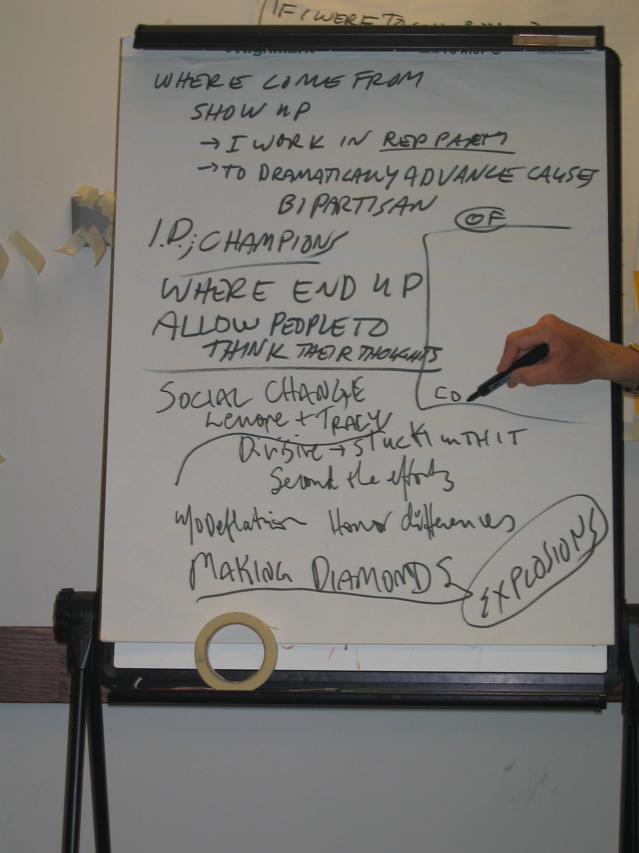 IF I WERE TO
WHERE COME FROM
SHOW UP
→ I WORK IN REP PARTY
→ TO DRAMATICALLY ADVANCE CAUSES
BIPARTISAN
OF
I.D; CHAMPIONS
WHERE END UP
ALLOW PEOPLE TO
THINK THEIR THOUGHTS
CO
SOCIAL CHANGE
Lenore + TRACY
Divisive → STUCK in THIT
Second the efforts
Honor differences
MAKING DIAMONDS
EXPLOSIONS